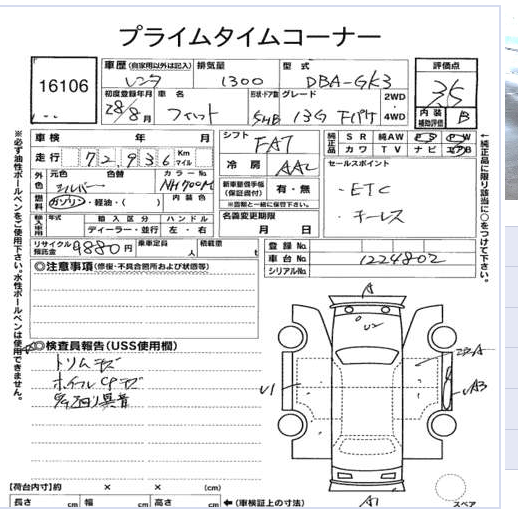 プライムタイムコーナー
16106
車歴(自家用以外は記入) 排気量 型式 評価点
レンタ 1300 DBA-GK3 3.5
初度登録年月 車名 形状・ドア数 グレード 2WD 内装補助評価 B
28年/8月 フィット 5HB 13G Fパケ 4WD
車検 年 月 シフト 純正品 SR 純AW PS PW
走行 72,936 Km マイル FAT カワ TV ナビ エアB
外色 元色 色替 カラーNo. 冷房 AAC セールスポイント
シルバー NH700M
燃料 ガソリン・軽油・( ) 内装色 新車整備手帳(保証書付) 有・無 ・ETC
※書類と一緒に保管下さい。 ・キーレス
輸入車用 年式 輸入区分 ハンドル 名義変更期限
ディーラー・並行 左・右 月 日
リサイクル預託金 9880円 乗車定員 人 積載量 t 登録No.
車台No. 1224802
シリアルNo.
◎注意事項(修復・不具合箇所および状態等)
◎検査員報告(USS使用欄)
トリムキズ
ホイルCPキズ
異音
A
U2
U1
UA3
A1
【荷台内寸】約 × × (cm)
長さ cm 幅 cm 高さ cm ←(車検証上の寸法) スペア
※必ず油性ボールペンをご使用下さい。水性ボールペンは使用できません。
←純正品に限り該当に○をつけて下さい。